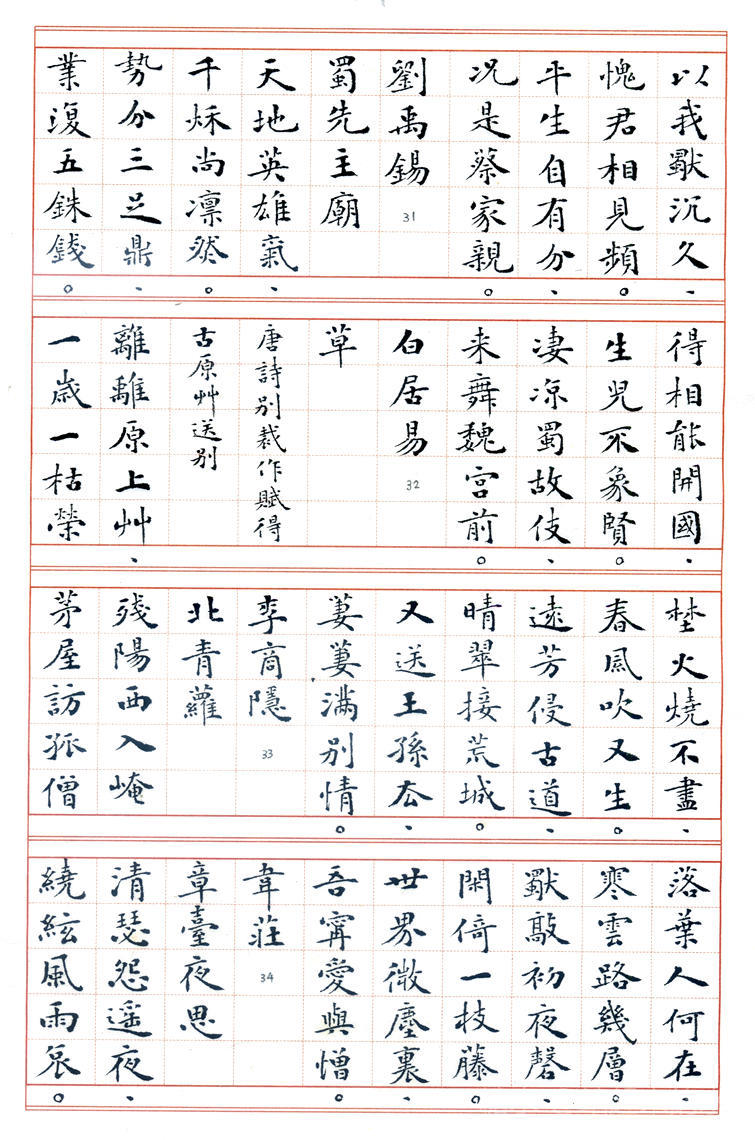 以我獨沉久、
愧君相見頻。
平生自有分、
况是蔡家親。
劉禹錫 31
蜀先主廟
天地英雄氣、
千秋尚凛然。
勢分三足鼎、
業復五銖錢。
得相能開國、
生兒不象賢。
凄凉蜀故伎、
来舞魏宫前。
白居易 32
草
唐詩别裁作賦得
古原艸送别
離離原上艸、
一歲一枯榮
埜火燒不盡、
春風吹又生。
遠芳侵古道、
晴翠接荒城。
又送王孫去、
萋萋滿别情。
李商隱 33
北青蘿
殘陽西入崦
茅屋訪孤僧
落葉人何在、
寒雲路幾層。
獨敲初夜磬、
閑倚一枝藤。
世界微塵裏、
吾寧愛與憎。
韋莊 34
章臺夜思
清瑟怨遥夜、
繞絃風雨哀。